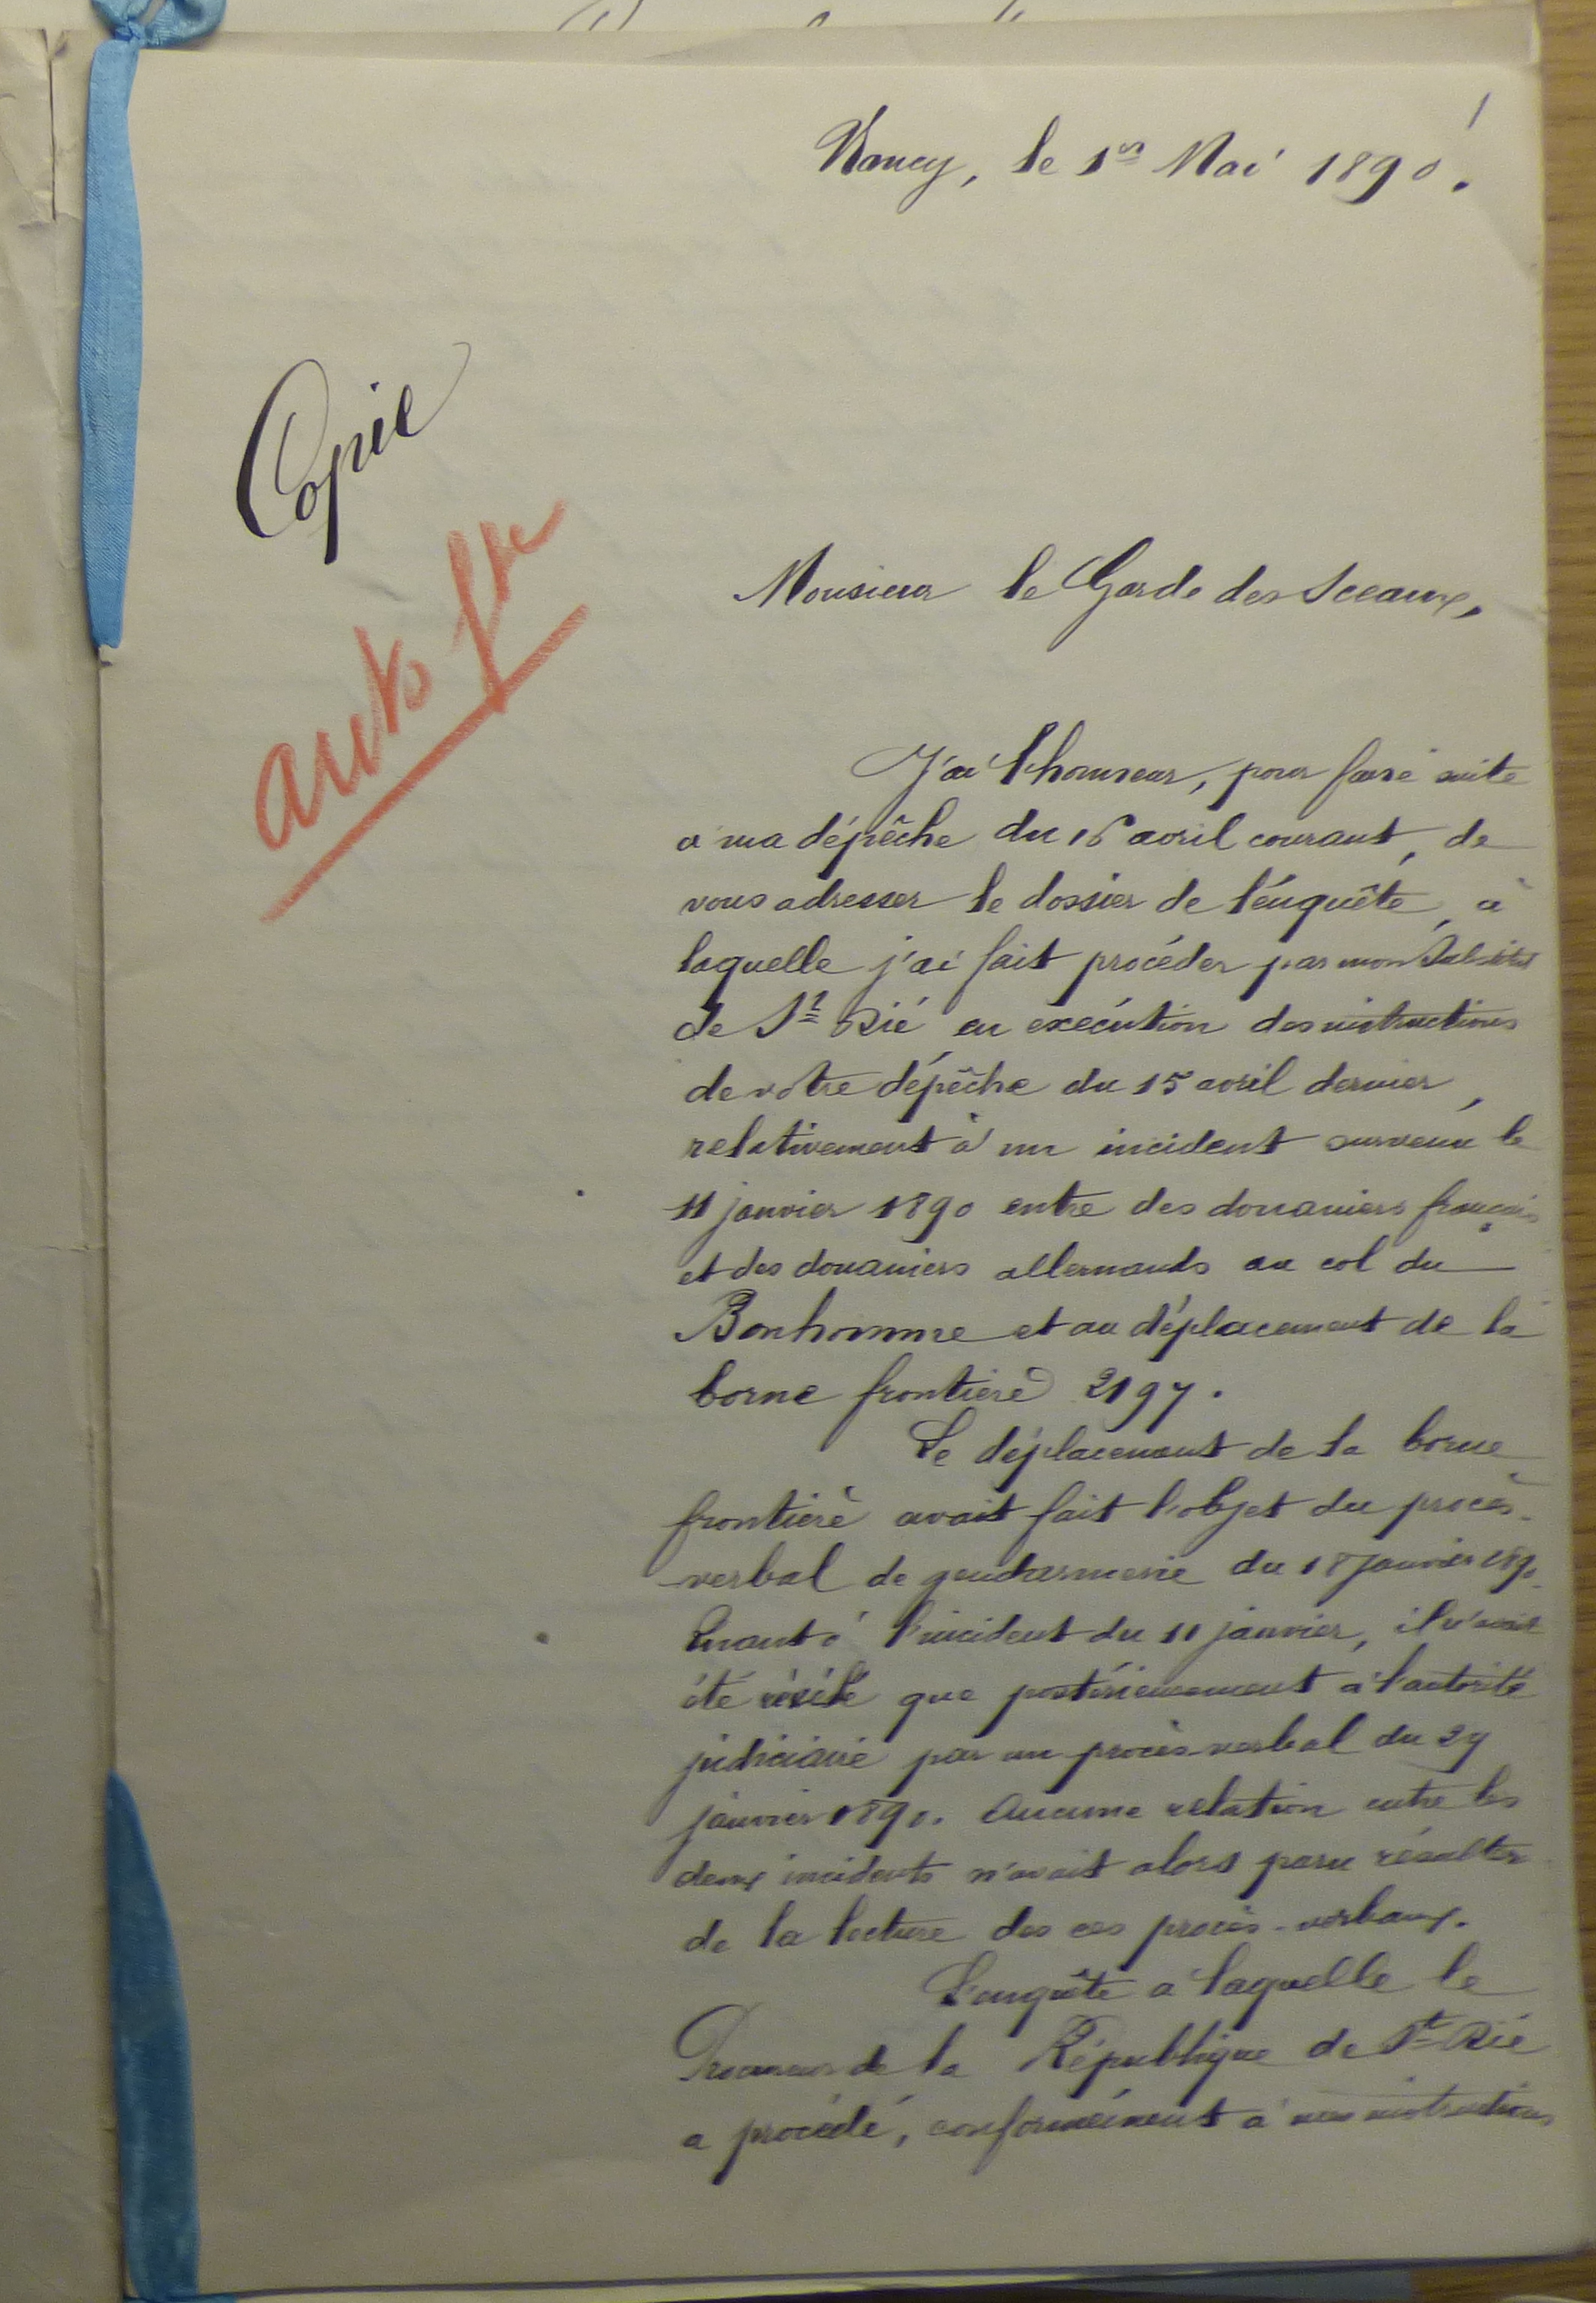 1
Nancy, le 1er Mai 1890.
Copie
auto
Monsieur le Garde des Sceaux,
J'ai l'honneur, pour faire suite
a ma dépêche du 16 avril courant, de
vous adresser le dossier de l'enquête, à
laquelle j'ai fait procéder par mon Substitut
de St Dié en exécution des instructions
de votre dépêche du 15 avril dernier,
relativement à un incident survenu le
11 janvier 1890 entre des douaniers français
et des douaniers allemands au col du
Bonhomme et au déplacement de la
borne frontière 2197.
Le déplacement de la borne
frontière avait fait l'objet du procès-
verbal de gendarmerie du 18 janvier 1890.
Quant à l'incident du 11 janvier, il n'avait
été que postérieurement à l'autorité
judiciaire par un procès-verbal du 27
janvier 1890. Aucune relation entre les
deux incidents n'avait alors paru résulter
de la lecture des ces procès-verbaux.
L'enquête a laquelle le
Procureur de la République de St Dié
a procédé, conformément à instructions